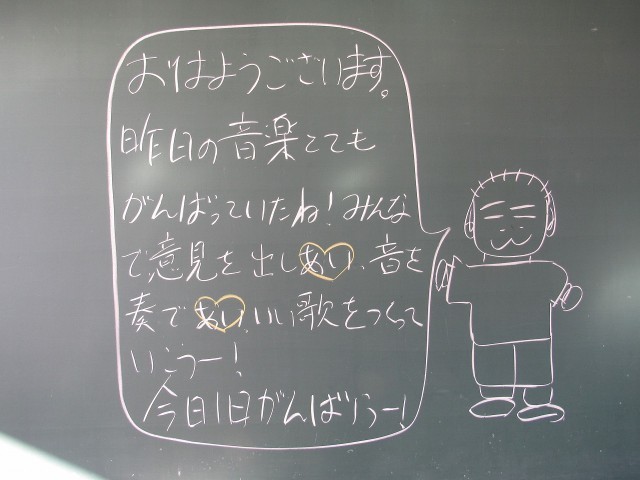 おはようございます。
昨日の音楽とても
がんばっていたね!みんな
で意見を出しあい、音を
奏であい、いい歌をつくって
いこうー!
今日1日がんばろうー!